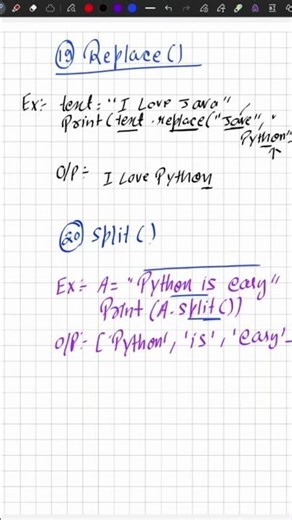 19 Replace()
Ex:- text = "I Love Java"
Print(text.replace("Jave", "
Python"
O/P:- I Love Python
20 Split()
Ex:- A = "Python is easy"
Print (A.split())
O/P:- ['Python', 'is', 'easy'